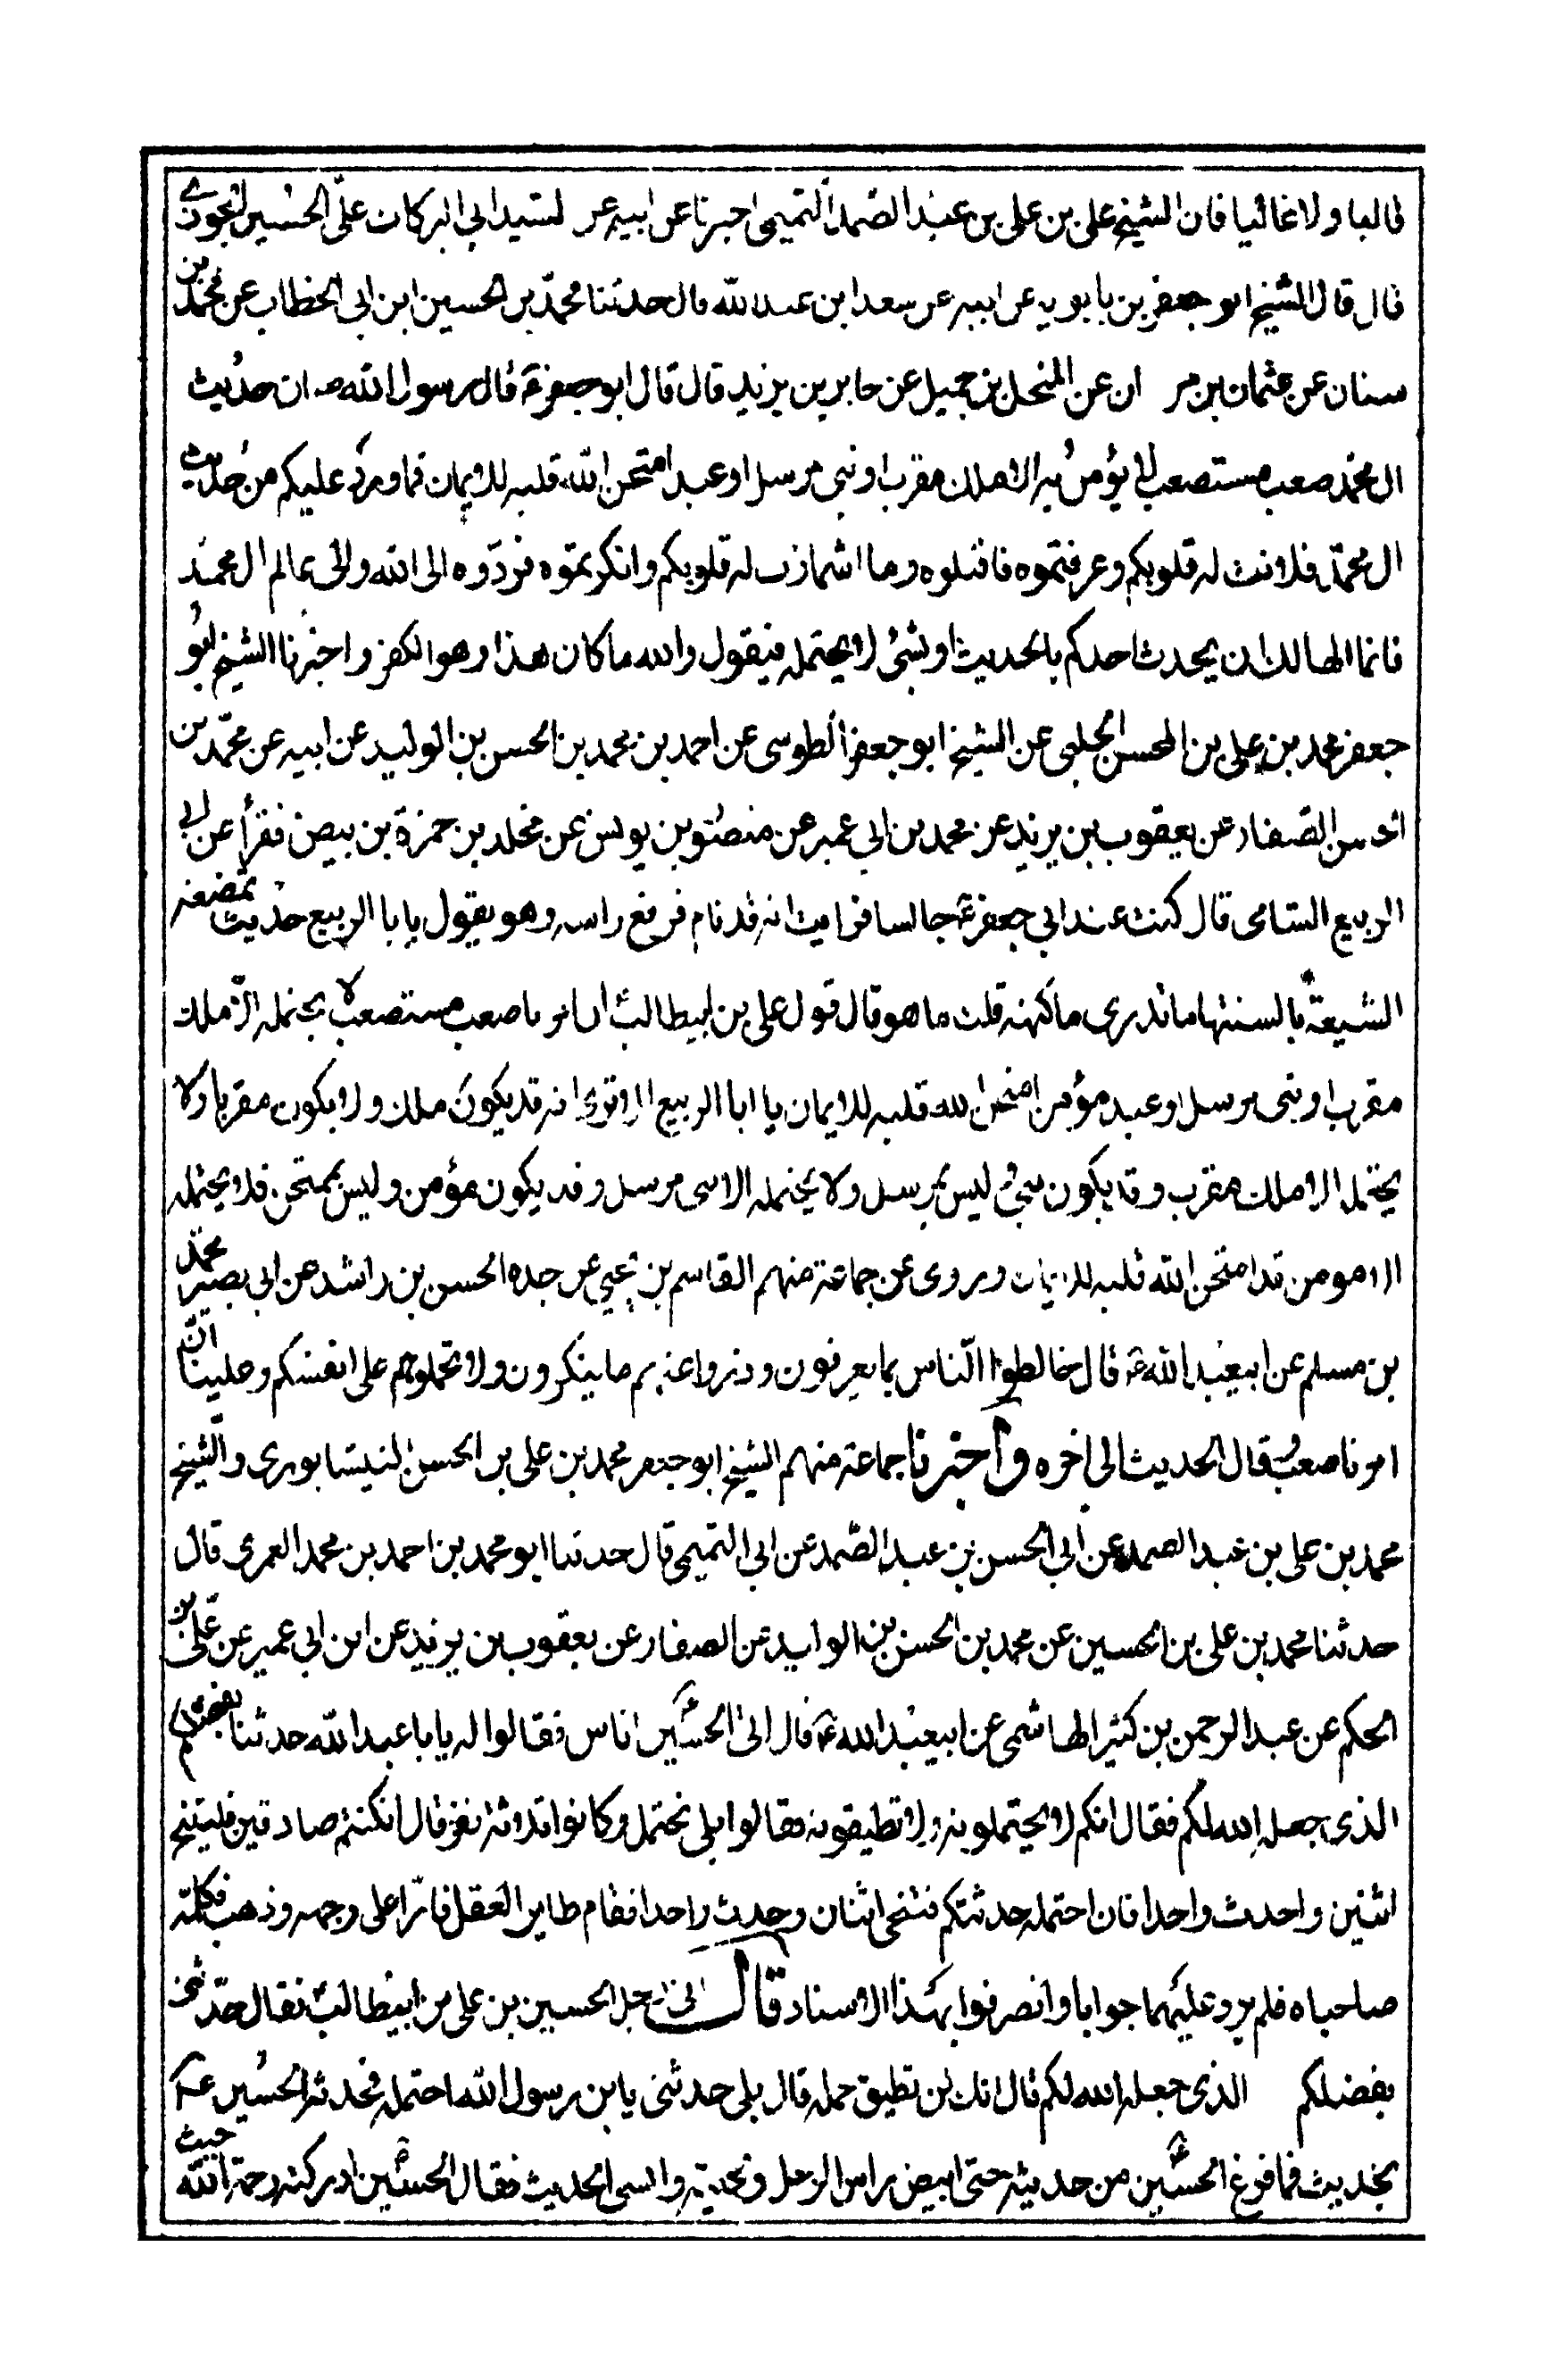 قالبا ولا غائبا فان الشيخ على بن على بن عبد الصمد التميمى اخبرنا عن ابيه عن السيد ابى البركات على الحسين الجوزى
قال قال الشيخ ابو جعفر بن بابويه عن ابيه عن سعد ابن عبد الله قال حدثنا محمد بن الحسين ابن ابى الخطاب عن محمد بن
سنان عن عثمان بن مر ان عن المنخل بن جميل عن جابر بن يزيد قال قال ابو جعفر ع قال رسول الله ص ان حديث
ال محمد صعب مستصعب لا يؤمن به الا ملك مقرب او نبى مرسل او عبد امتحن الله قلبه للايمان فما ورد عليكم من حديث
ال محمد فلانت له قلوبكم وعرفتموه فاقبلوه وما اشمازت له قلوبكم وانكرتموه فردوه الى الله والى عالم ال محمد
فانما الهالك ان يحدث احدكم بالحديث او بشئ لا يحتمله فيقول والله ما كان هذا وهو الكفر واخبرنا الشيخ ابو
جعفر محمد بن على بن المحسن الحلبى عن الشيخ ابو جعفر الطوسى عن احمد بن محمد بن الحسن بن الوليد عن ابيه عن محمد بن
الحسن الصفار عن يعقوب بن يزيد عن محمد بن ابى عمير عن منصور بن يونس عن مخلد بن حمزة بن بيض فقرأ عن ابى
الربيع الشامى قال كنت عند ابى جعفر ع جالسا فرايت انه قد نام فرفع راسه وهو يقول يا با الربيع حديث تمضغه
الشيعة بالسنتها ما تدرى ما كنهه قلت ما هو قال قول على بن ابيطالب ان امرنا صعب مستصعب لا يحتمله الا ملك
مقرب او نبى مرسل او عبد مؤمن امتحن الله قلبه للايمان يا ابا الربيع الا ترى انه قد يكون ملك ولا يكون مقربا ولا
يحتمله الا ملك مقرب وقد يكون نبى ليس بمرسل ولا يحتمله الا نبى مرسل وقد يكون مؤمن وليس بممتحن فلا يحتمله
الا مومن قد امتحن الله قلبه للايمان وروى عن جماعة منهم القاسم بن يحيى عن جده الحسن بن راشد عن ابى بصير محمد
بن مسلم عن ابيعبد الله ع قال خالطوا الناس بما يعرفون وذروا عندهم ما ينكرون ولا تحملوهم على انفسكم وعلينا ان
امرنا صعب قال الحديث الى اخره واخبرنا جماعة منهم الشيخ ابو جعفر محمد بن على بن الحسن النيسابورى والشيخ
محمد بن على بن عبد الصمد عن ابى الحسن بن عبد الصمد عن ابى التميمى قال حدثنا ابو محمد بن احمد بن محمد العمرى قال
حدثنا محمد بن على بن الحسين عن محمد بن الحسن بن الوليد عن الصفار عن يعقوب بن يزيد عن ابن ابى عمير عن على بن
الحكم عن عبد الرحمن بن كثير الهاشمى عن ابيعبد الله ع قال اتى الحسين اناس فقالوا له يا با عبد الله حدثنا بفضلكم
الذى جعل الله لكم فقال انكم لا تحتملونه ولا تطيقونه فقالوا بلى نحتمل وكانوا ثلاثة نفر قال ان كنتم صادقين فليتنح
اثنين واحدث واحدا فان احتمله حدثتكم فتنحى اثنان وحدث واحدا فقام طاير العقل فارّا على وجهه وذهب فكلمه
صاحباه فلم يرد عليهما جوابا وانصرفوا بهذا الاسناد قال اتى رجل الحسين بن على بن ابيطالب فقال حدثنى
بفضلكم الذى جعله الله لكم قال انك لن تطيق حمله قال بلى حدثنى يا بن رسول الله احتمله فحدثه الحسين ع
بحديث فما فرغ الحسين من حديثه حتى ابيض راس الرجل ولحيته وانسى الحديث فقال الحسين ادركته رحمة الله حيث